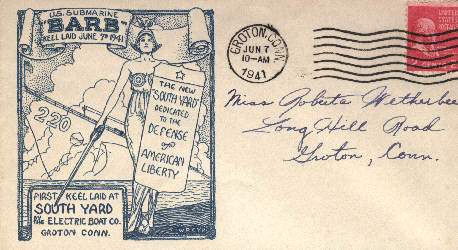 U.S. SUBMARINE
"BARB"
KEEL LAID JUNE 7TH 1941
THE NEW
"SOUTH YARD"
DEDICATED
TO THE
DEFENSE
OF
AMERICAN
LIBERTY
220
FIRST KEEL LAID AT
SOUTH YARD
BY THE ELECTRIC BOAT CO.
GROTON CONN.
GROTON, CONN.
JUN 7
10-AM
1941
UNITED STATES POSTAGE
Miss Roberta Wetherbee
Long Hill Road
Groton, Conn.